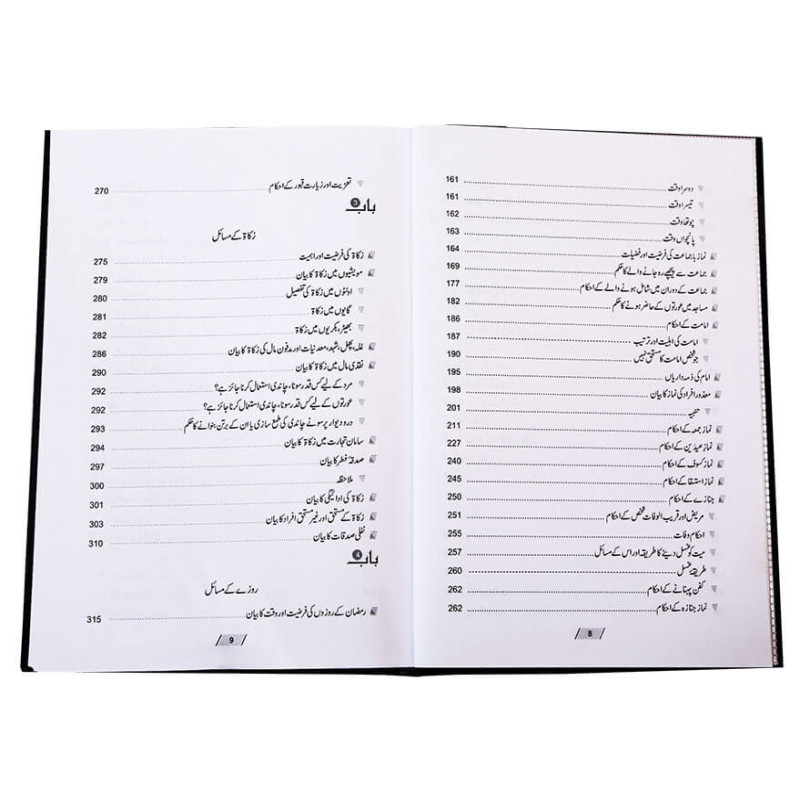 دوسرا وقت 161
تیسرا وقت 161
چوتھا وقت 162
پانچواں وقت 163
نماز باجماعت کی فرضیت اور فضیلت 164
جماعت سے پیچھے رہ جانے والے کا حکم 169
جماعت کے دوران میں شامل ہونے والے کے احکام 177
مساجد میں عورتوں کے حاضر ہونے کا حکم 182
امامت کے احکام 186
امامت کی اہلیت اور ترتیب 187
جو شخص امامت کا مستحق نہیں 190
امام کی ذمہ داریاں 195
معذور افراد کی نماز کا بیان 198
تنبیہ 201
نماز جمعہ کے احکام 211
نماز عیدین کے احکام 227
نماز کسوف کے احکام 240
نماز استسقا کے احکام 245
جنازے کے احکام 250
مریض اور قریب الوفات شخص کے احکام 251
احکام وفات 255
میت کو غسل دینے کا طریقہ اور اس کے مسائل 257
طریقۂ غسل 260
کفن پہنانے کے احکام 262
نماز جنازہ کے احکام 262
8
تعزیت اور زیارت قبور کے احکام 270
باب 3
زکاۃ کے مسائل
زکاۃ کی فرضیت اور اہمیت 275
مویشیوں میں زکاۃ کا بیان 279
اونٹوں میں زکاۃ کی تفصیل 280
گایوں میں زکاۃ 281
بھیڑ، بکریوں میں زکاۃ 282
غلہ، پھل، شہد، معدنیات اور مدفون مال کی زکاۃ کا بیان 286
نقدی مال میں زکاۃ کا بیان 290
مرد کے لیے کس قدر سونا، چاندی استعمال کرنا جائز ہے؟ 292
عورتوں کے لیے کس قدر سونا، چاندی استعمال کرنا جائز ہے؟ 292
در و دیوار پر سونے چاندی کی طمع سازی یا ان کے برتن بنوانے کا حکم 293
سامان تجارت میں زکاۃ کا بیان 294
صدقۂ فطر کا بیان 297
ملاحظہ 300
زکاۃ کی ادائیگی کا بیان 301
زکاۃ کے مستحق اور غیر مستحق افراد کا بیان 303
نفلی صدقات کا بیان 310
باب 4
روزے کے مسائل
رمضان کے روزوں کی فرضیت اور وقت کا بیان 315
9